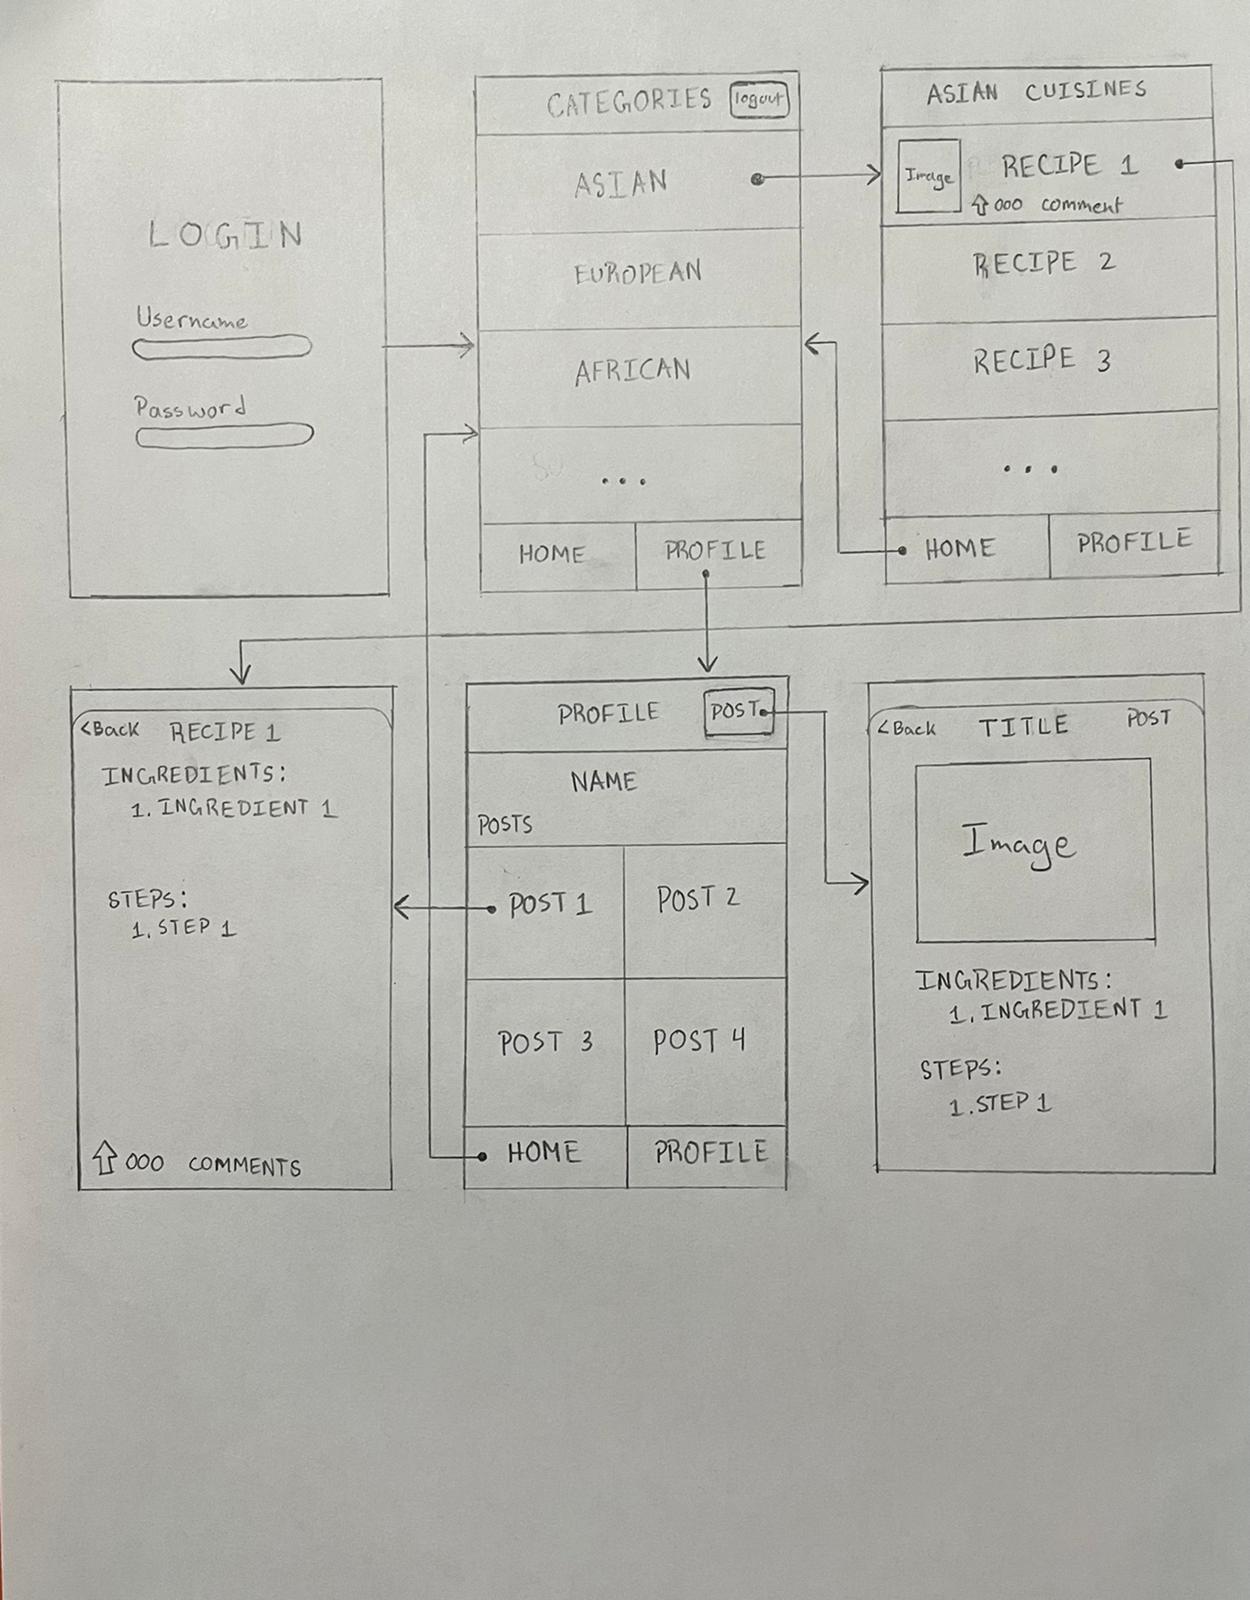 LOGIN
Username
Password
CATEGORIES logout
ASIAN
EUROPEAN
AFRICAN
...
HOME PROFILE
ASIAN CUISINES
Image RECIPE 1
000 comment
RECIPE 2
RECIPE 3
...
HOME PROFILE
<Back RECIPE 1
INGREDIENTS:
1. INGREDIENT 1
STEPS:
1. STEP 1
000 COMMENTS
PROFILE POST
NAME
POSTS
POST 1 POST 2
POST 3 POST 4
HOME PROFILE
<Back TITLE POST
Image
INGREDIENTS:
1. INGREDIENT 1
STEPS:
1. STEP 1